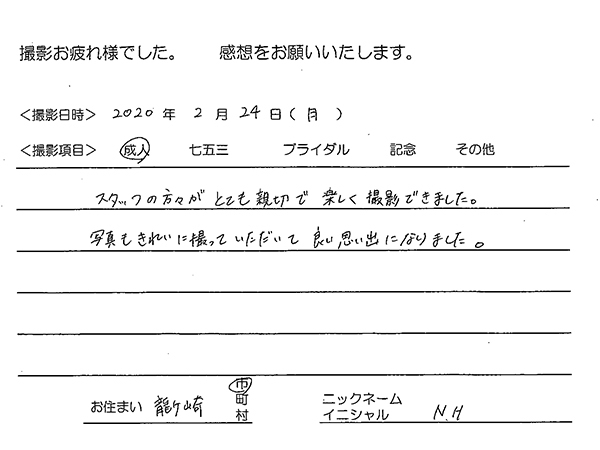 撮影お疲れ様でした。　感想をお願いいたします。
＜撮影日時＞ 2020 年 2 月 24 日 ( 月 )
＜撮影項目＞ 成人 七五三 ブライダル 記念 その他
スタッフの方々が とても親切で 楽しく 撮影できました。
写真もきれいに撮っていただいて 良い思い出になりました。
お住まい 龍ヶ崎 市 町 村 ニックネーム イニシャル N.H